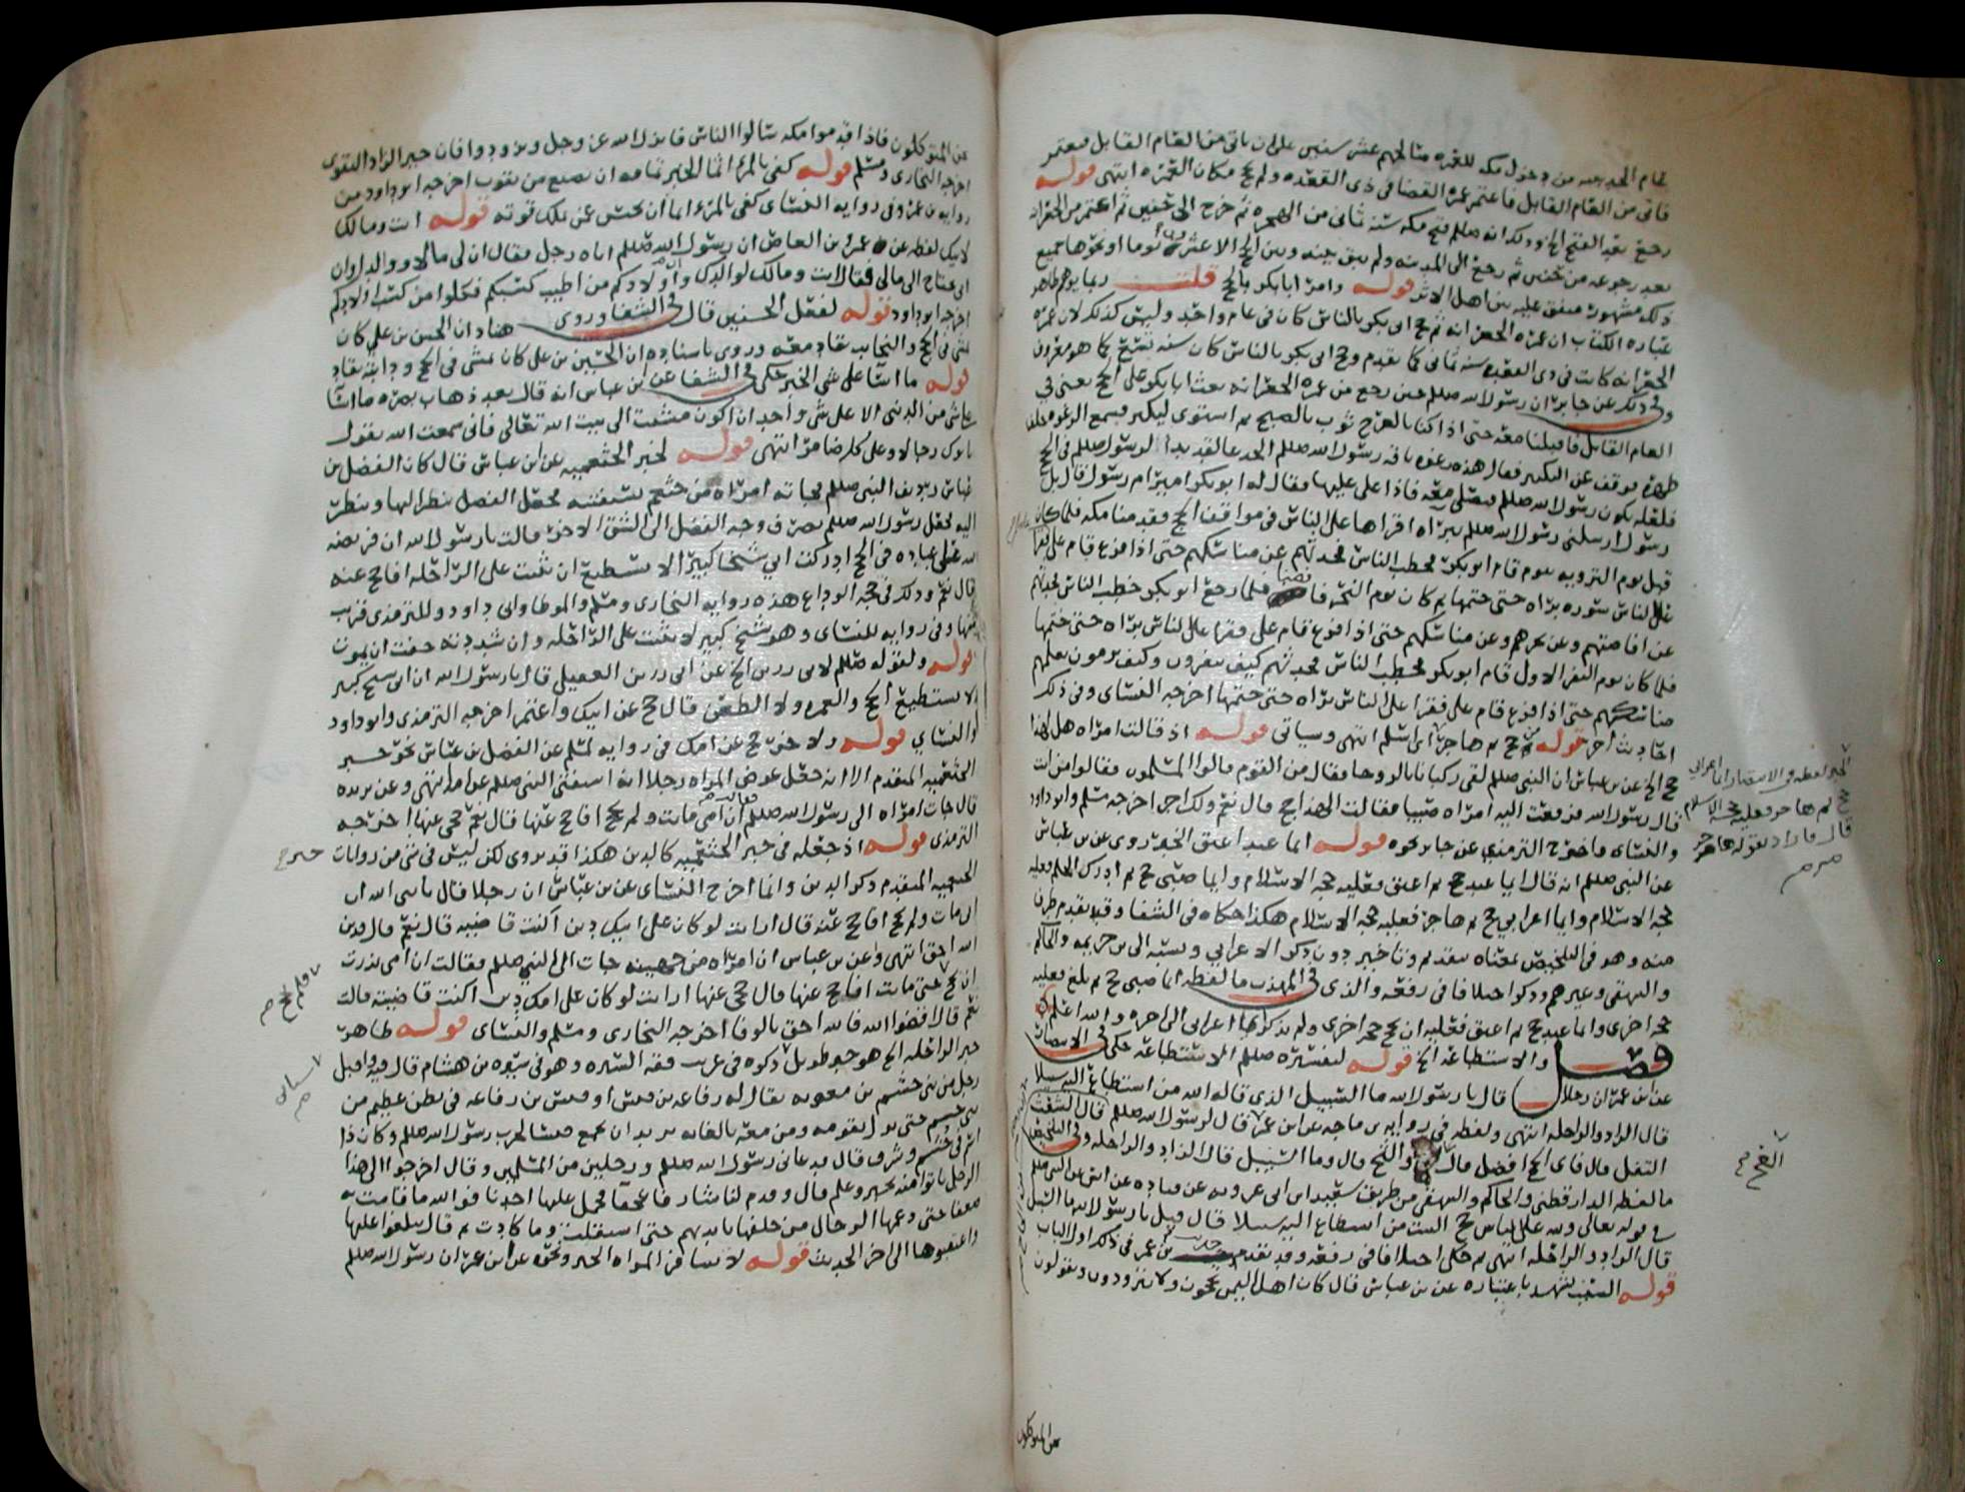 عام الحديبيه من دخول مكه للعمره صالحهم عشر سنين على ان ياتى من العام القابل فيعتمر
فاتى من العام القابل فاعتمر عمرة القضا فى ذى القعده ولم يحج مكان العمره انتهى قوله
رجع بعد الفتح الخ وذلك انه صللم فتح مكه سنه ثمانى من الهجره ثم خرج الى حنين ثم اعتمر من الجعرانه
بعد رجوعه من حنين ثم رجع الى المدينه ولم يبق بينه وبين الحج الا عشرون يوما او نحوها جميع
ذلك مشهور متفق عليه بين اهل الاثر قوله وامر ابابكر بالحج قلت ربما يوهم ظاهر
عباره الكتاب ان عمره الجعرانه ثم حج ابى بكر بالناس كان فى عام واحد وليس كذلك لان عمره
الجعرانه كانت فى ذى القعده سنه ثمانى كما تقدم وحج ابى بكر بالناس كان سنه تسع كما هو معروف
وفى ذلك عن جابر ان رسول الله صللم حين رجع من عمره الجعرانه بعث ابا بكر على الحج يعنى فى
العام القابل فاقبلنا معه حتى اذا كنا بالعرج ثوب بالصبح ثم استوى ليكبر فسمع الرغوه خلف
ظهره فوقف عن التكبير فقال هذه رغوه ناقه رسول الله صللم الجدعا لقد بدا لرسول الله صللم فى الحج
فلعله يكون رسول الله صللم فنصلى معه فاذا على عليها فقال له ابو بكر امير ام رسول قال بل
رسول ارسلنى رسول الله صللم ببراه اقراها على الناس فى مواقف الحج فقدمنا مكه فلما كان
قبل يوم الترويه بيوم قام ابو بكر فخطب الناس فحدثهم عن مناسكهم حتى اذا فرغ قام على فقرا
على الناس سوره براه حتى ختمها ثم كان يوم النحر فافضنا فلما رجع ابو بكر خطب الناس فحدثهم
عن افاضتهم وعن نحرهم وعن مناسكهم حتى اذا فرغ قام على فقرا على الناس براه حتى ختمها
فلما كان يوم النفر الاول قام ابو بكر فخطب الناس فحدثهم كيف ينفرون وكيف يرمون يعلمهم
مناسكهم حتى اذا فرغ قام على فقرا على الناس براه حتى ختمها اخرجه النسائى وفى ذلك
احاديث اخر قوله حج ثم هاجر اى اسلم انتهى وسياتى قوله اذ قالت امراه هل لهذا
حج الخ عن بن عباس ان النبى صللم لقى ركبانا بالروحا فقال من القوم قالوا المسلمون فقالوا من انت
قال رسول الله فرفعت اليه امراه صبيا فقالت الهذا حج قال نعم ولك اجر اخرجه مسلم وابو داود
والنسائى واخرج الترمذى عن جابر نحوه قوله ايما عبد اعتق الخبر روى عن بن عباس
عن النبى صللم انه قال ايما عبد حج ثم اعتق فعليه حجه الاسلام وايما صبى حج ثم ادرك الحلم فعليه
حجه الاسلام وايما اعرابى حج ثم هاجر فعليه حجه الاسلام هكذا حكاه فى الشفا وقد تقدم طرف
منه وهو فى التلخيص بمعناه بتقديم وتاخير دون ذكر الاعرابى ونسبه الى بن خزيمه والحاكم
والبيهقى وغيرهم وذكر اختلافا فى رفعه والذى فى المهذب ما لفظه ايما صبى حج ثم بلغ فعليه
حجه اخرى وايما عبد حج ثم اعتق فعليه ان يحج حجه اخرى ولم يذكر ايما اعرابى الى اخره والله اعلم
فصل والاستطاعه الخ قوله لتفسيره صللم الاستطاعه حكى فى الانتصار
عن ابن عمر ان رجلا قال يا رسول الله ما السبيل الذى قاله الله من استطاع اليه سبيلا
قال الزاد والراحله انتهى ولفظه فى روايه بن ماجه عن ابن عمر قال لرسول الله صللم قال الشعث
التفل قال فاى الحج افضل قال العج والثج قال وما السبيل قال الزاد والراحله وفى التلخيص
ما لفظه الدارقطنى والحاكم والبيهقى من طريق سعيد ابن ابى عروبه عن قتاده عن انس عن النبى صللم
فى قوله تعالى ولله على الناس حج البيت من استطاع اليه سبيلا قال قيل يا رسول الله ما السبيل
قال الزاد والراحله انتهى ثم حكى اختلافا فى رفعه وقد تقدم حديث بن عمر فى ذلك اول الباب
قوله عن بن عباس قال كان اهل اليمن يحجون ولا يتزودون ويقولون
نحن المتوكلون
ثم هاجر فعليه حجه الاسلام
قال فاراد بقوله هاجر
العج
نحن المتوكلون فاذا قدموا مكه سالوا الناس فانزل الله عز وجل وتزودوا فان خير الزاد التقوى
اخرجه البخارى ومسلم قوله كفى بالمرء اثما الخبر تمامه ان يضيع من يقوت اخرجه ابو داود من
روايه بن عمرو وفى روايه النسائى كفى بالمرء اثما ان يحبس عن ملك قوته قوله انت ومالك
لابيك لفظه عن عمرو بن العاص ان رسول الله صللم اتاه رجل فقال ان لى مالا ووالدا وان
ابى يحتاج الى مالى فقال انت ومالك لوالدك وان اولادكم من اطيب كسبكم فكلوا من كسب اولادكم
اخرجه ابو داود قوله لفعل الحسنين قال فى الشفا وروى هناد ان الحسن بن على كان
يمشى فى الحج والنجايب تقاد معه وروى باسناده ان الحسين بن على كان يمشى فى الحج ودابته تقاد
قوله ما اسا على شى الخبر حكى فى الشفا عن ابن عباس انه قال بعد ذهاب بصره ما اسا
على شى من الدنيا الا على شى واحد ان اكون مشيت الى بيت الله تعالى فانى سمعت الله يقول
ياتوك رجالا وعلى كل ضامر انتهى قوله لخبر الخثعميه عن ابن عباس قال كان الفضل بن
عباس رديف النبى صللم فجاته امراه من خثعم تستفتيه فجعل الفضل ينظر اليها وتنظر
اليه فجعل رسول الله صللم يصرف وجه الفضل الى الشق الاخر قالت يا رسول الله ان فريضه
الله على عباده فى الحج ادركت ابى شيخا كبيرا لا يستطيع ان يثبت على الراحله افاحج عنه
قال نعم وذلك فى حجه الوداع هذه روايه البخارى ومسلم والموطا وابى داود وللترمذى قريب
منها وفى روايه للنسائى وهو شيخ كبير لا يثبت على الراحله وان شددته خفت ان يموت
قوله ولقوله صللم لابى رزين الخ عن ابى رزين العقيلى قال يا رسول الله ان ابى شيخ كبير
لا يستطيع الحج والعمره ولا الظعن قال حج عن ابيك واعتمر اخرجه الترمذى وابو داود
والنسائى قوله ولاخر حج عن امك فى روايه لمسلم عن الفضل بن عباس نحو خبر
الخثعميه المتقدم الا انه جعل عوض المراه رجلا انه استفتى النبى صللم عن امه انتهى وعن بريده
قال جات امراه الى رسول الله صللم فقالت ان امى ماتت ولم تحج افاحج عنها قال نعم حجى عنها اخرجه
الترمذى قوله اذ جعله فى خبر الخثعميه كالدين هكذا قد يروى لكن ليس فى شى من روايات
الخثعميه المتقدم ذكر الدين وانما اخرج النسائى عن بن عباس ان رجلا قال يا نبى الله ان
ابى مات ولم يحج افاحج عنه قال ارايت لو كان على ابيك دين اكنت قاضيه قال نعم قال فدين
الله احق انتهى وعن بن عباس ان امراه من جهينه جات الى النبى صللم فقالت ان امى نذرت
ان تحج حتى ماتت افاحج عنها قال حجى عنها ارايت لو كان على امك دين اكنت قاضيته قالت
نعم قال اقضوا الله فالله احق بالوفا اخرجه البخارى ومسلم والنسائى قوله ظاهر
خبر الراحله الخ هو خبر طويل ذكره فى غريب فقه السيره وهو فى سيره بن هشام قال فيه واقبل
رجل من بنى جشم بن معويه يقال له رفاعه بن قيس او قيس بن رفاعه فى بطن عظيم من
بنى جشم حتى نزل بقومه ومن معه بالغابه يريد ان يجمع قيسا لحرب رسول الله صللم وكان ذا
اسم فى جشم وشرف قال فدعانى رسول الله صللم ورجلين من المسلمين وقال اخرجوا الى هذا
الرجل تاتوا منه بخبر وعلم قال وقدم لنا شارفا عجفا فحمل عليها احدنا فوالله ما قامت به
ضعفا حتى دعمها الرجال من خلفها بايديهم حتى استقلت وما كادت ثم قال تبلغوا عليها
واعتقبوها الى اخر الحديث قوله لا تسافر المراه الخبر ونحوه عن ابن عمر ان رسول الله صللم
خبر
فلم تحج